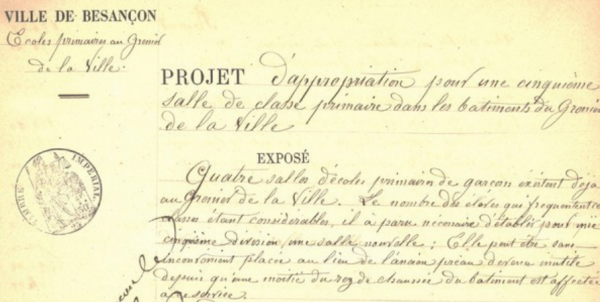 VILLE DE BESANÇON
Ecoles primaires au Grenier
de la Ville.
PROJET d'appropriation pour une cinquième
salle de classe primaire dans les batiments du Grenier
de la Ville
EXPOSÉ
Quatre salles d'écoles primaires de garçon existent déja
au Grenier de la Ville. Le nombre des élèves qui fréquentent ces
classes étant considérable, il a paru nécessaire d'établir pour une
cinquième division, une salle nouvelle ; Elle peut être sans
inconvénient placée au lieu de l'ancien préau devenu inutile
depuis qu'une moitié du rez de chaussée du batiment est affectée
à ce service.
TIMBRE IMPERIAL